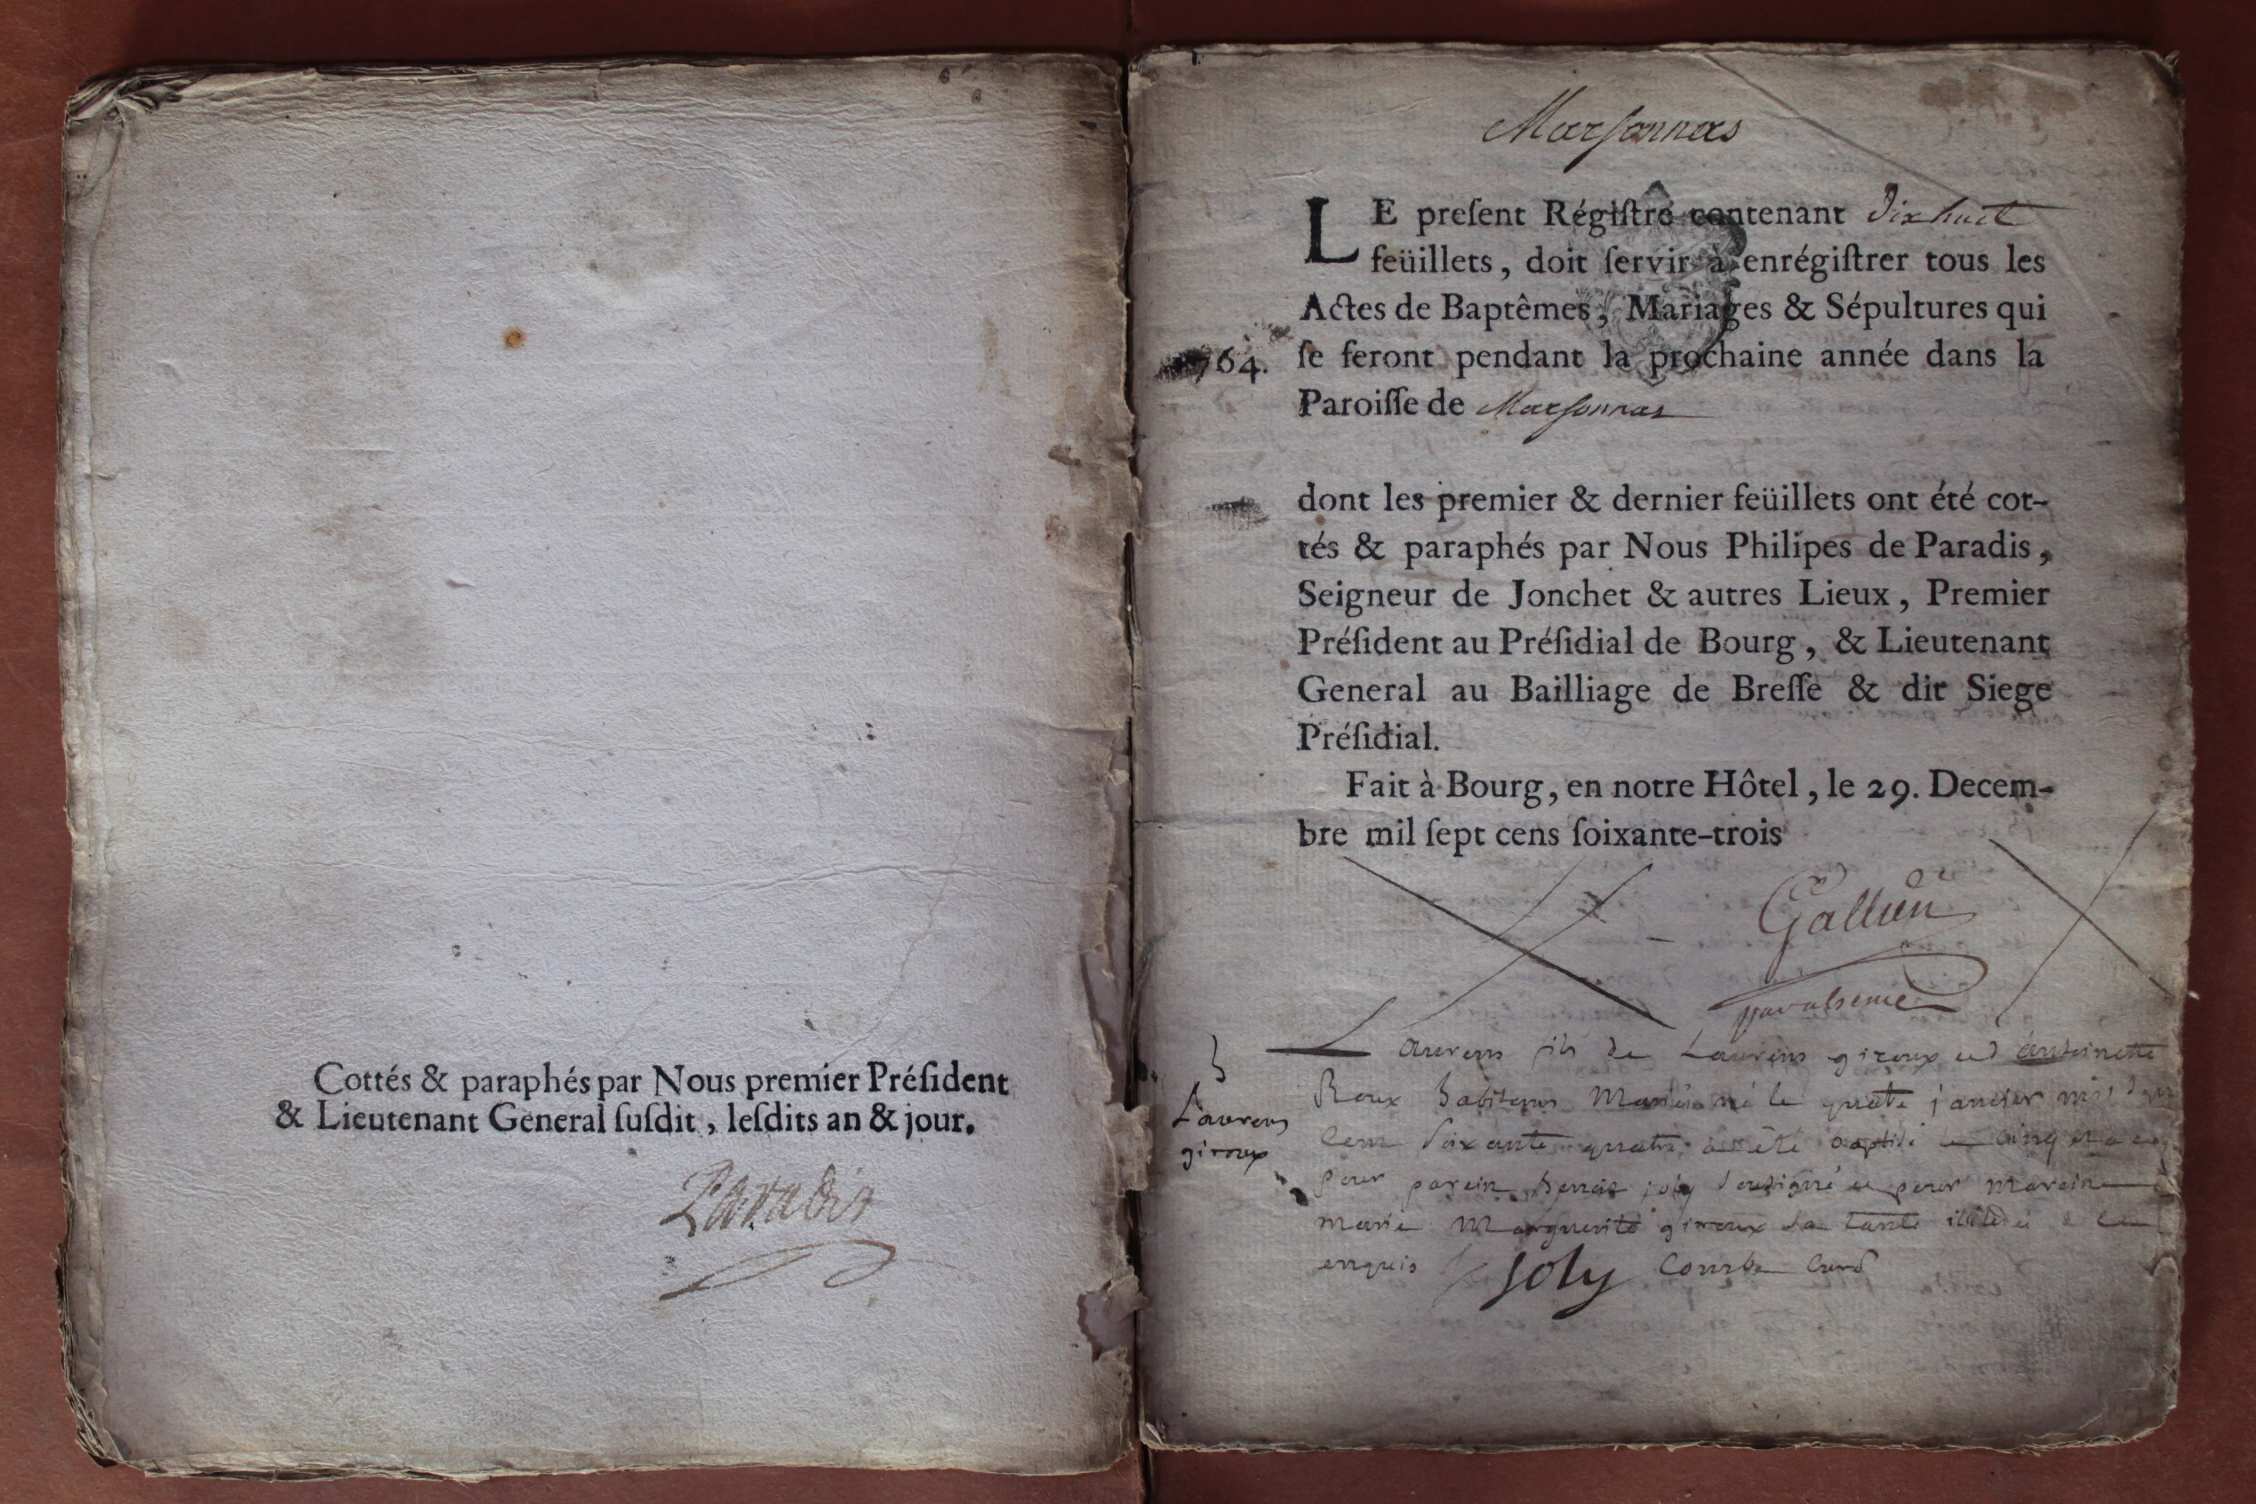 Cottés & paraphés par Nous premier Préſident
& Lieutenant General ſuſdit, leſdits an & jour.
Paradis
Marſonnas
LE preſent Régiſtre contenant Dixhuit
feüillets, doit ſervir à enrégiſtrer tous les
Actes de Baptêmes, Mariages & Sépultures qui
764. ſe feront pendant la prochaine année dans la
Paroiſſe de Marſonnas
dont les premier & dernier feüillets ont été cot-
tés & paraphés par Nous Philipes de Paradis,
Seigneur de Jonchet & autres Lieux, Premier
Préſident au Préſidial de Bourg, & Lieutenant
General au Bailliage de Breſſe & dit Siege
Préſidial.
Fait à Bourg, en notre Hôtel, le 29. Decem-
bre mil ſept cens ſoixante-trois
Laurens
giroux
Laurens fils de Laurens giroux et antoinette
Roux habitans né le quatre janvier
cent soixante quatre a été cinq
pour parein joly sousigné pour mareine
marie Marguerite giroux sa tante
enquis joly curé